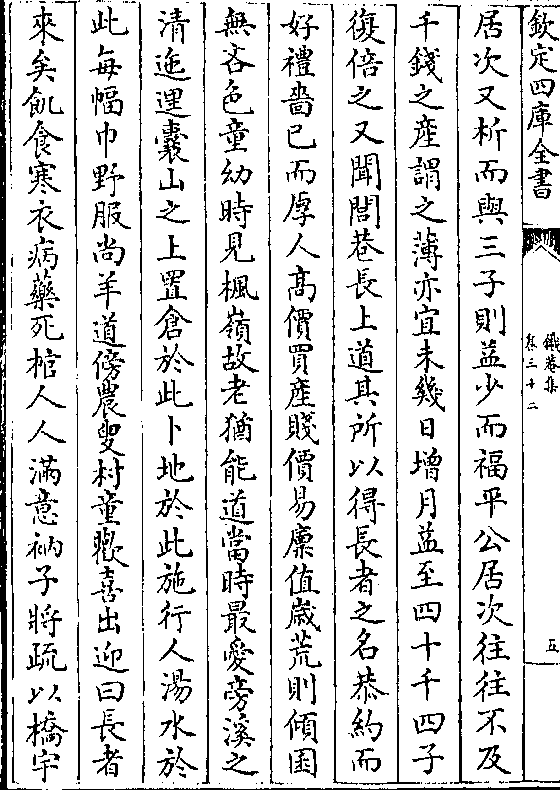 欽定四庫全書
鐵菴集
卷三十二
五
居次又析而與三子則益少而福平公居次往往不及
千錢之產謂之薄亦宜未幾日增月益至四十千四子
復倍之又聞閭巷長上道其所以得長者之名恭約而
好禮嗇已而厚人高價買產賤價易廪值歳荒則傾囷
無吝色童幼時見楓嶺故老猶能道當時最愛旁溪之
清迤邐囊山之上置倉於此卜地於此施行人湯水於
此每幅巾野服尚羊道傍農叟村童歡喜出迎曰長者
來矣飢食寒衣病藥死棺人人滿意衲子將疏以橋宇